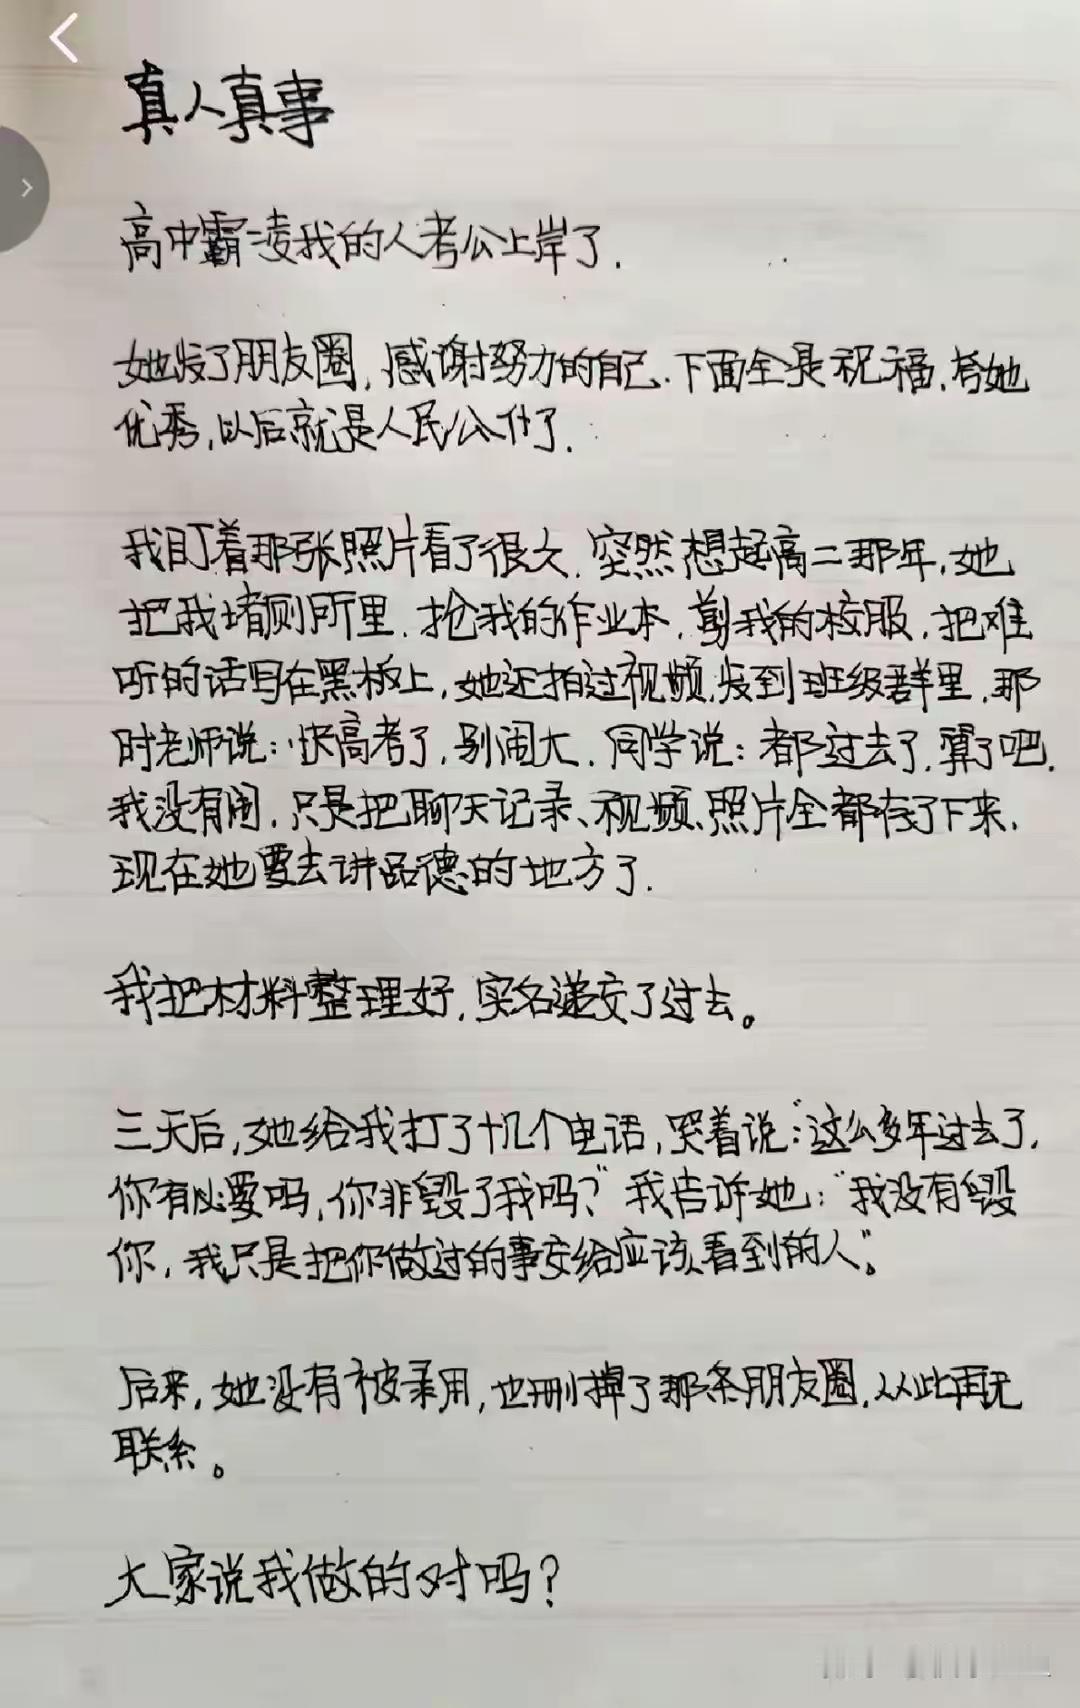 真人真事
高中霸凌我的人考公上岸了.
她发了朋友圈,感谢努力的自己.下面全是祝福,夸她
优秀,以后就是人民公仆了.
我盯着那张照片看了很久.突然想起高二那年,她
把我堵厕所里.抢我的作业本,剪我的校服,把难
听的话写在黑板上,她还拍过视频,发到班级群里,那
时老师说:快高考了,别闹大.同学说:都过去了,算了吧.
我没有闹,只是把聊天记录、视频、照片全都存了下来,
现在她要去讲品德的地方了.
我把材料整理好,实名递交了过去。
三天后,她给我打了十几个电话,哭着说:"这么多年过去了,
你有必要吗,你非毁了我吗?"我告诉她:"我没有毁
你,我只是把你做过的事交给应该看到的人"。
后来,她没有被录用,也删掉了那条朋友圈,从此再无
联系。
大家说我做的对吗?